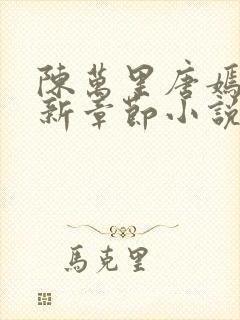 陳萬里唐嫣
新章節小說
馬克里